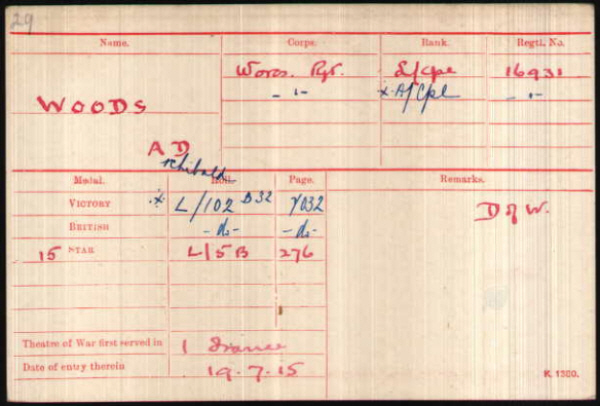 29
Name. Corps. Rank. Regtl. No.
WOODS Worcs. Rgt. L/Cpe 16931
-"- x A/Cpl -"-
A D
rchibald
Medal. Roll. Page. Remarks.
VICTORY x L/102 B32 7032 D of W.
BRITISH -do- -do-
15 STAR L/5B 276
Theatre of War first served in 1 France
Date of entry therein 19.7.15
K 1380.